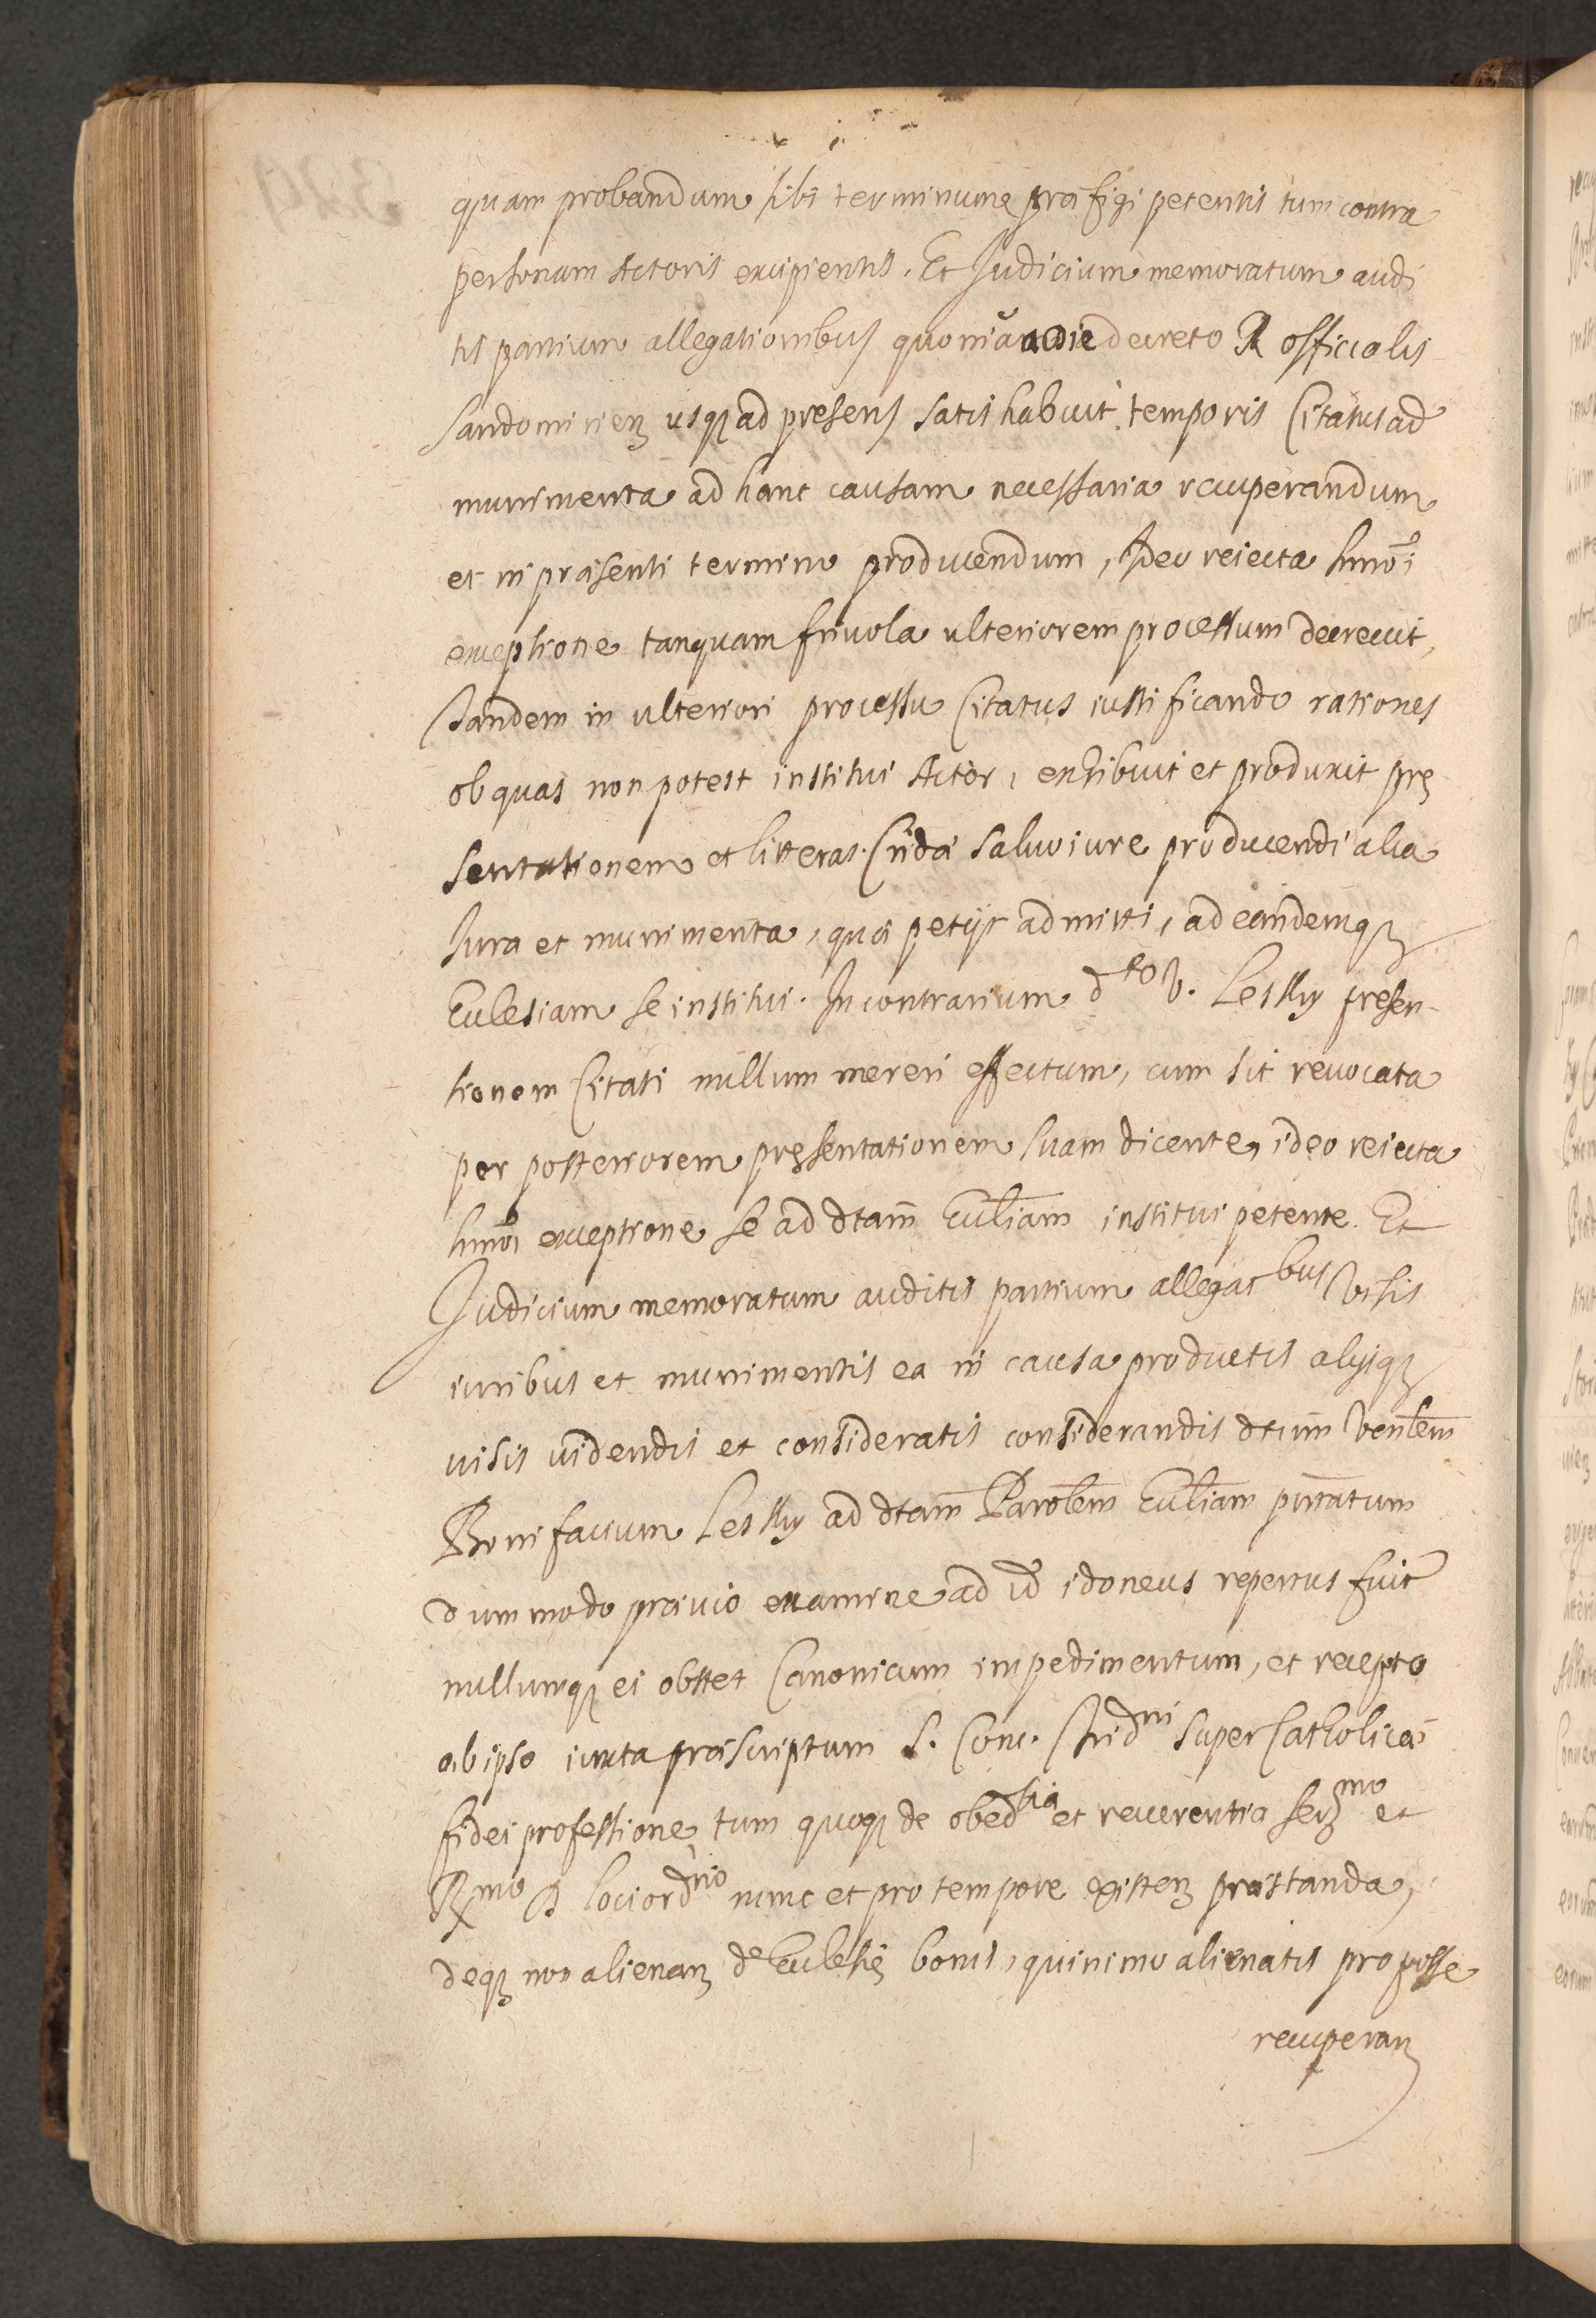 quam probandum sibi terminum præfigi petentis tum contra
personam Actoris excipientis, Et Judicium memoratum audi
tis partium allegationibus quoniã a die decreto R officialis
Sandomirien usq; ad presens satis habuit temporis Citatus ad
munimenta ad hanc causam necessaria recuperandum
et in præsenti termino producendum, Ideo reiecta hmoi
exceptione tanquam frivola ulteriorem processum decrevit,
Tandem in ulteriori processu Citatus iustificando rationes
ob quas non potest institui Actor, exhibuit et produxit pre
sentationem et litteras salvo iure producendi alia
Iura et munimenta, quæ petijt admitti, ad eandemq;
Ecclesiam se institui. In contrarium dto V. Lesky presen-
tionem Citati nullum mereri effectum, cum sit revocata
per posteriorem presentationem suam dicente, ideo reiecta
hmoi exceptione se ad dtam Eccliam institui petente. Et
Judicium memoratum auditis partium allegatbus Visis
iuribus et munimentis ea in causa productis alijsq;
visis videndis et consideratis considerandis dtum Venlem
Bonifacium Lesky ad dtam Parolem Eccliam pnttatum
dummodo prævio examine ad id idoneus repertus fuit
nullumq; ei obstet Canonicum impedimentum, et recepta
ab ipso iuxta præscriptum S. Conc. Tridni super Catholicæ
fidei professione, tum quoq; de obedtia et reverentia Sermo et
Rmo D loci ordrio nunc et pro tempore existen præstanda,
deq; non alienan de Ecclesiæ bonis, quinimo alienatis pro posse
recuperan